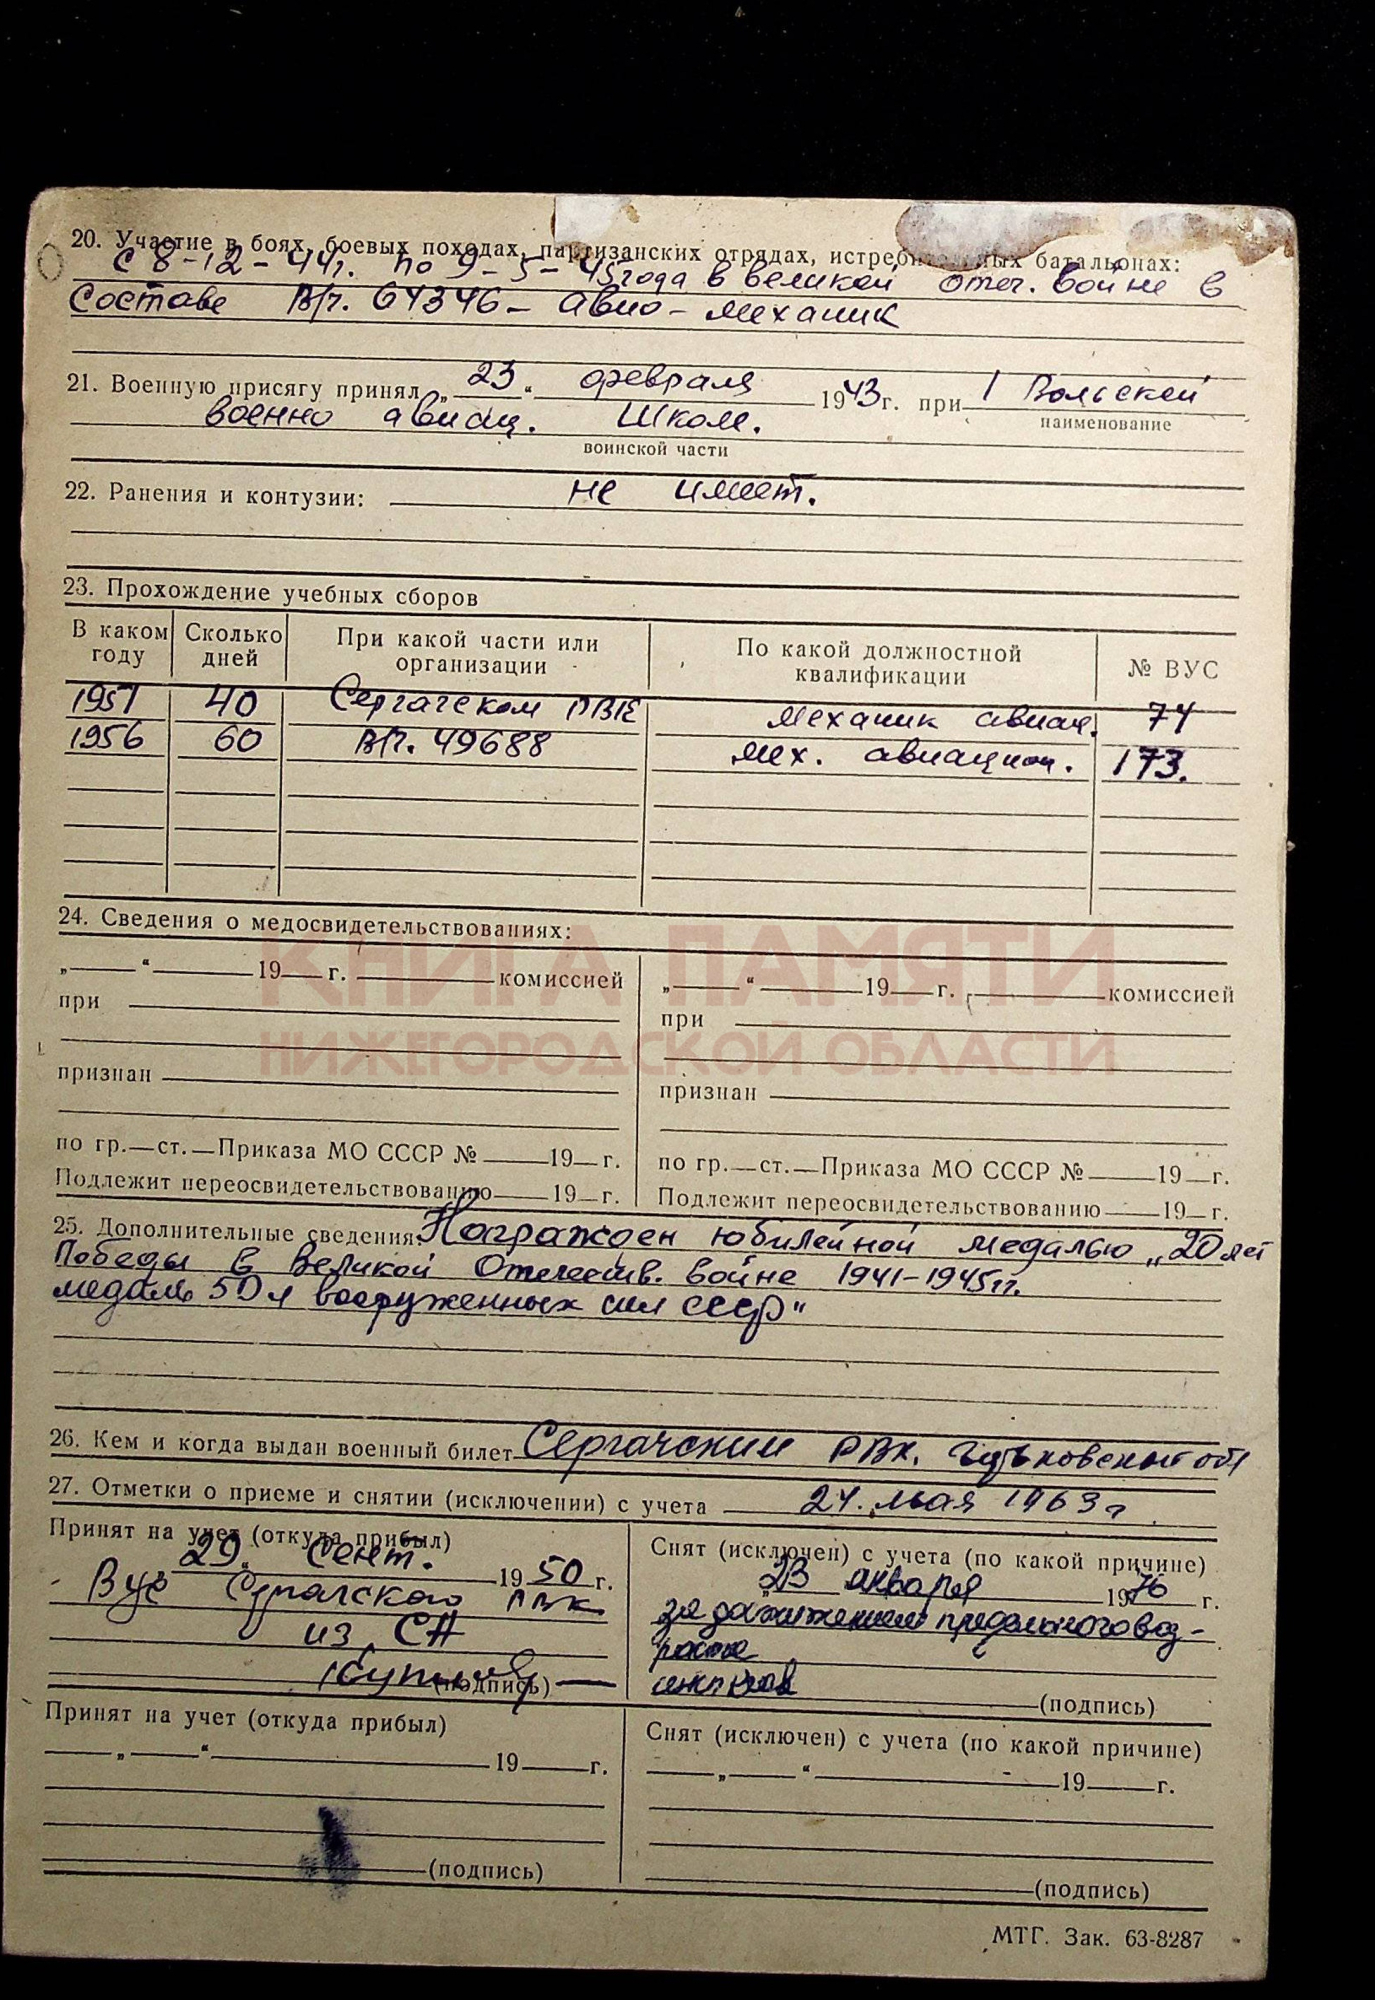 20. Участие в боях, боевых походах, партизанских отрядах, истребительных батальонах:
с 8-12-44г. по 9-5-45года в великой отеч. войне в
составе в/ч. 64346 - авио-механик
21. Военную присягу принял „23“ февраля 1943г. при 1 Вольской
наименование
военно авиац. школ.
воинской части
22. Ранения и контузии: не имеет.
23. Прохождение учебных сборов
В каком году Сколько дней При какой части или организации По какой должностной квалификации № ВУС
1951 40 Сергачском РВК механик авиац. 74
1956 60 в/ч. 49688 мех. авиацион. 173.
24. Сведения о медосвидетельствованиях:
КНИГА ПАМЯТИ
НИЖЕГОРОДСКОЙ ОБЛАСТИ
„ “ 19 г. комиссией „ “ 19 г. комиссией
при при
признан признан
по гр. ст. Приказа МО СССР № 19 г. по гр. ст. Приказа МО СССР № 19 г.
Подлежит переосвидетельствованию 19 г. Подлежит переосвидетельствованию 19 г.
25. Дополнительные сведения: Награжден юбилейной медалью „20 лет
Победы в Великой Отечеств. войне 1941-1945гг.
медаль 50 л вооруженных сил СССР"
26. Кем и когда выдан военный билет Сергачский РВК. Горьковской обл
27. Отметки о приеме и снятии (исключении) с учета 24. мая 1963г
Принят на учет (откуда прибыл) Снят (исключен) с учета (по какой причине)
29. Сент. 1950 г. „23 января 1976 г.
ВУС Сергачского РВК за достижением предельного воз-
из СА раста
(подпись) (подпись)
Принят на учет (откуда прибыл) Снят (исключен) с учета (по какой причине)
„ “ 19 г. „ “ 19 г.
(подпись) (подпись)
МТГ. Зак. 63-8287